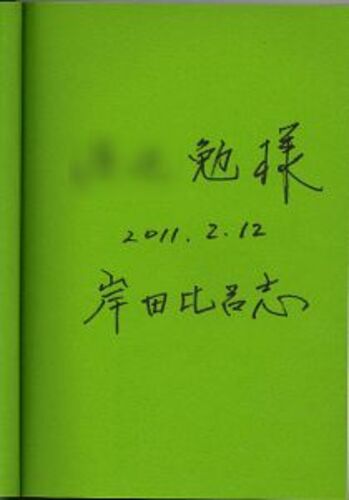 勉様
2011.2.12
岸田比呂志